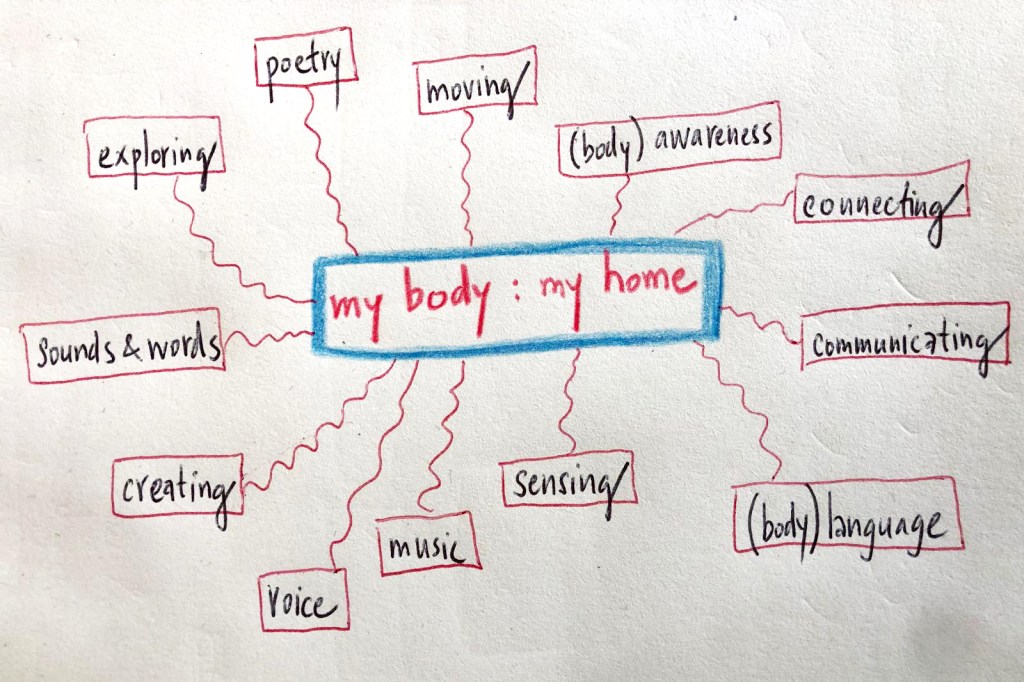 poetry
moving
(body) awareness
exploring
connecting
my body : my home
sounds & words
communicating
creating
sensing
(body) language
music
voice